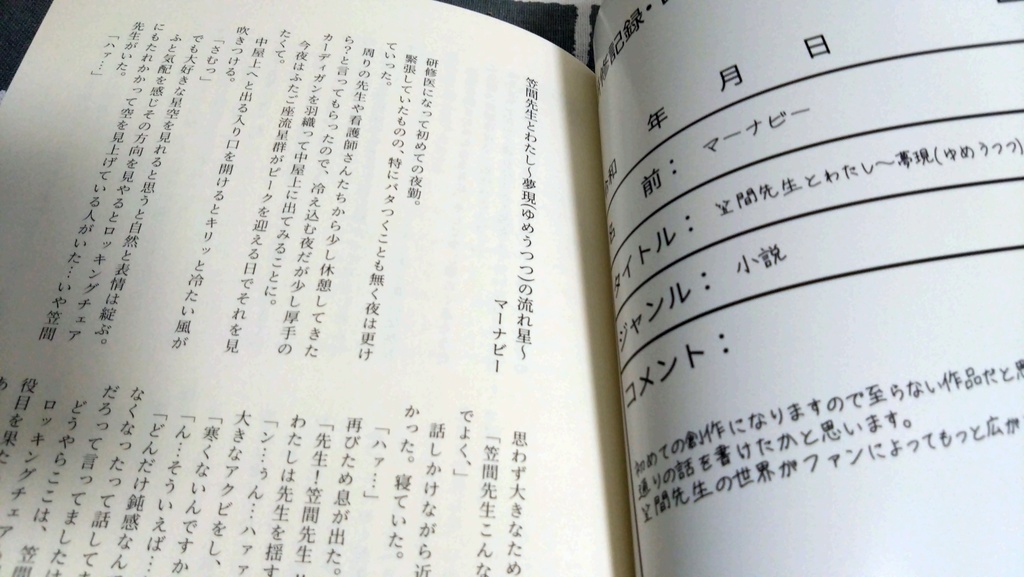 記録・
年 月 日
前： マーナビー
タイトル： 笠間先生とわたし〜夢現(ゆめうつつ)
ジャンル： 小説
コメント：
初めての創作になりますので至らない作品だと思
通りの話を書けたかと思います。
笠間先生の世界がファンによってもっと広が
笠間先生とわたし〜夢現(ゆめうつつ)の流れ星〜
マーナビー
研修医になって初めての夜勤。
緊張していたものの、特にバタつくことも無く夜は更け
ていった。
周りの先生や看護師さんたちから少し休憩してきた
ら？と言ってもらったので、冷え込む夜だが少し厚手の
カーディガンを羽織って中屋上に出てみることに。
今夜はふたご座流星群がピークを迎える日でそれを見
たくて。
中屋上へと出る入り口を開けるとキリッと冷たい風が
吹きつける。
「さむっ」
でも大好きな星空を見れると思うと自然と表情は綻ぶ。
ふと気配を感じその方向を見やるとロッキングチェア
にもたれかかって空を見上げている人がいた…いや笠間
先生がいた。
「ハァ…」
思わず大きなため
「笠間先生こんな
でよく、」
話しかけながら近
かった。寝ていた。
「ハァ…」
再びため息が出た。
「先生！笠間先生
わたしは先生を揺す
「ン…うん…ハァァ
大きなアクビをし、
「寒くないんですか
「ん…そういえば…
「どんだけ鈍感なん
なくなったって話して
だろって言ってましたけ
どうやらここは、笠
ロッキングチェア
役目を果た